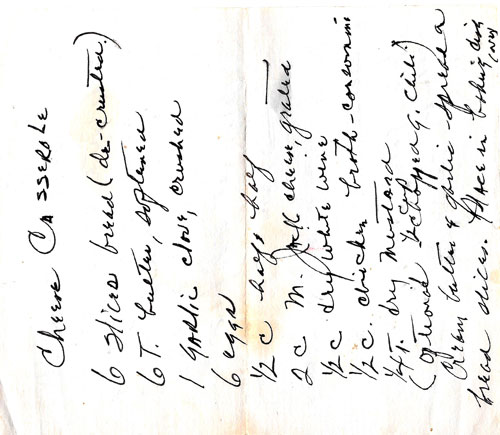 Cheese Casserole
6 slices bread (de-crusted.)
6 T. butter, softened
1 garlic clove, crushed
6 eggs
1/2 c half & half
2 c M. Jack cheese, grated
1/2 c dry white wine
1/2 c. chicken broth - consommé
1/4 T. dry mustard
(optional 1/2 cup chopped G. chili)
Cream butter & garlic - spread on
bread slices. Place in baking dish